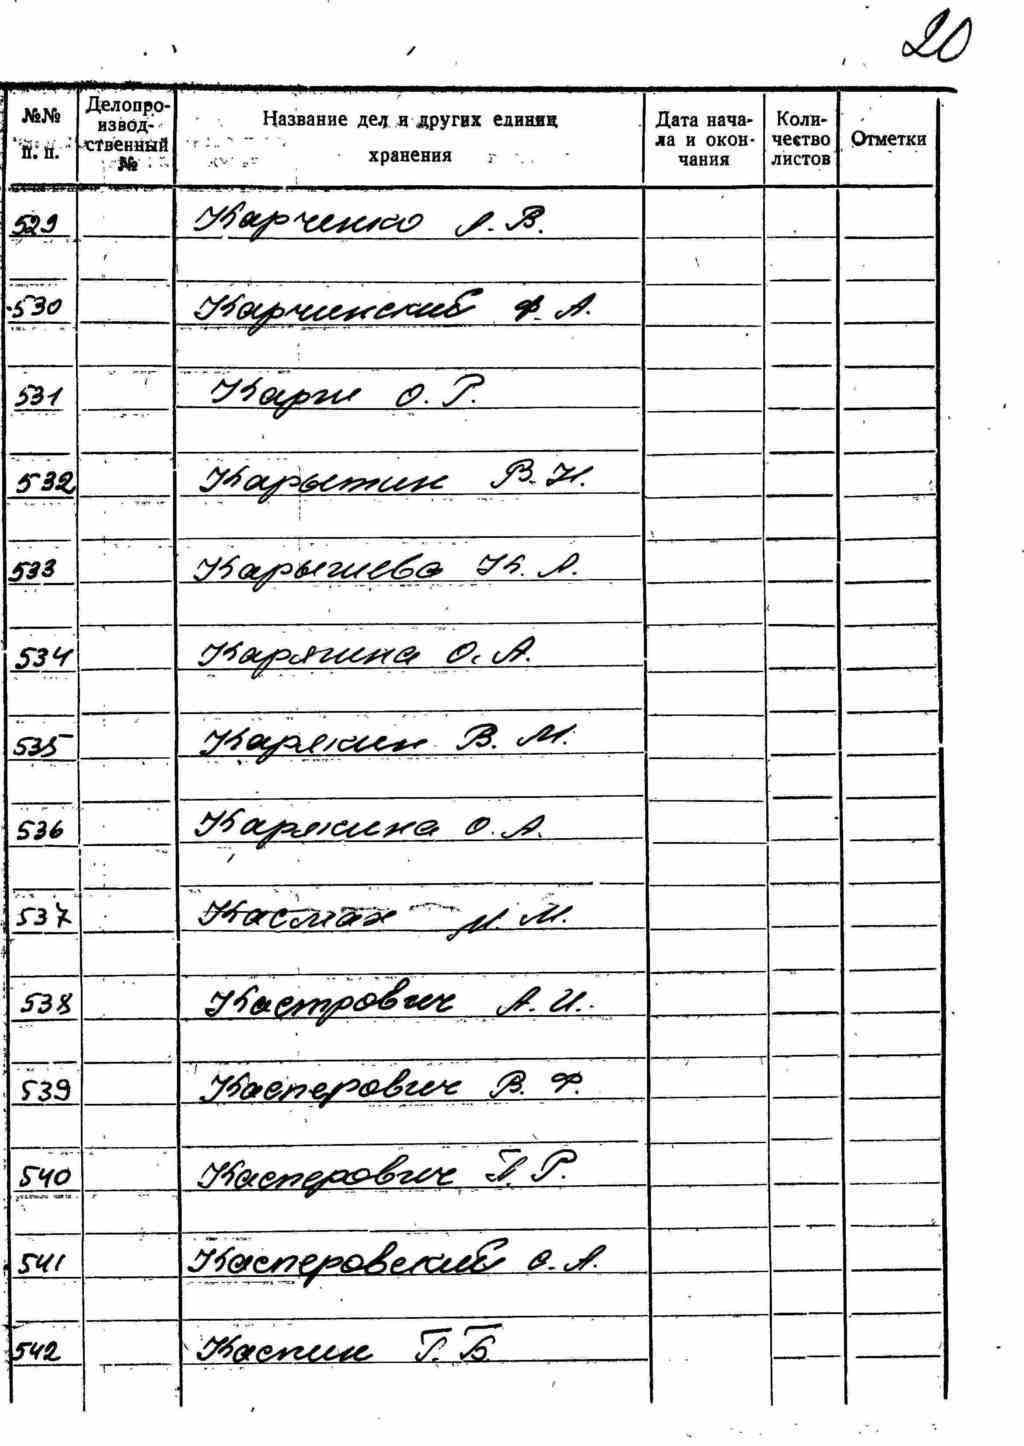 20
№№ п. п. Делопроизводственный № Название дел и других единиц хранения Дата начала и окончания Количество листов Отметки
529 Карченко А. В.
530 Карчинский Ф. А.
531 Карш О. Р.
532 Карытин В. Н.
533 Карышева К. А.
534 Карягина О. А.
535 Карякин В. М.
536 Карякина О. А.
537 Касман И. М.
538 Кастрович А. И.
539 Касперович В. Ф.
540 Касперович П. Р.
541 Касперовский С. А.
542 Каспин Г. Б.